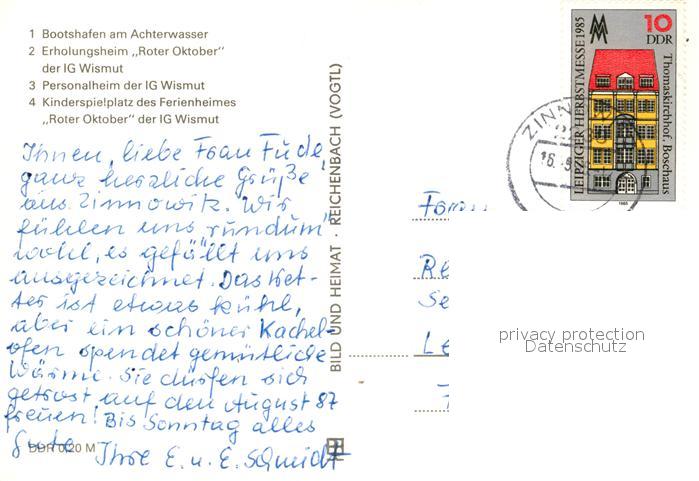 1 Bootshafen am Achterwasser
2 Erholungsheim „Roter Oktober"
der IG Wismut
3 Personalheim der IG Wismut
4 Kinderspielplatz des Ferienheimes
„Roter Oktober" der IG Wismut
Ihnen, liebe Frau Fude,
ganz herzliche Grüße
aus Zinnowitz. Wir
fühlen uns „rundum"
wohl, es gefällt uns
ausgezeichnet. Das Wet-
ter ist etwas kühl,
aber ein schöner Kachel-
ofen spendet gemütliche
Wärme. Sie dürfen sich
getrost auf den August 87
freuen! Bis Sonntag alles
Gute Ihre E. u. E. Schmidt
DDR 0,20 M
BILD UND HEIMAT · REICHENBACH (VOGTL)
10
DDR
LEIPZIGER HERBSTMESSE 1985
Thomaskirchhof, Bosehaus
1985
ZINN
16.
Re
Se
Le
privacy protection
Datenschutz